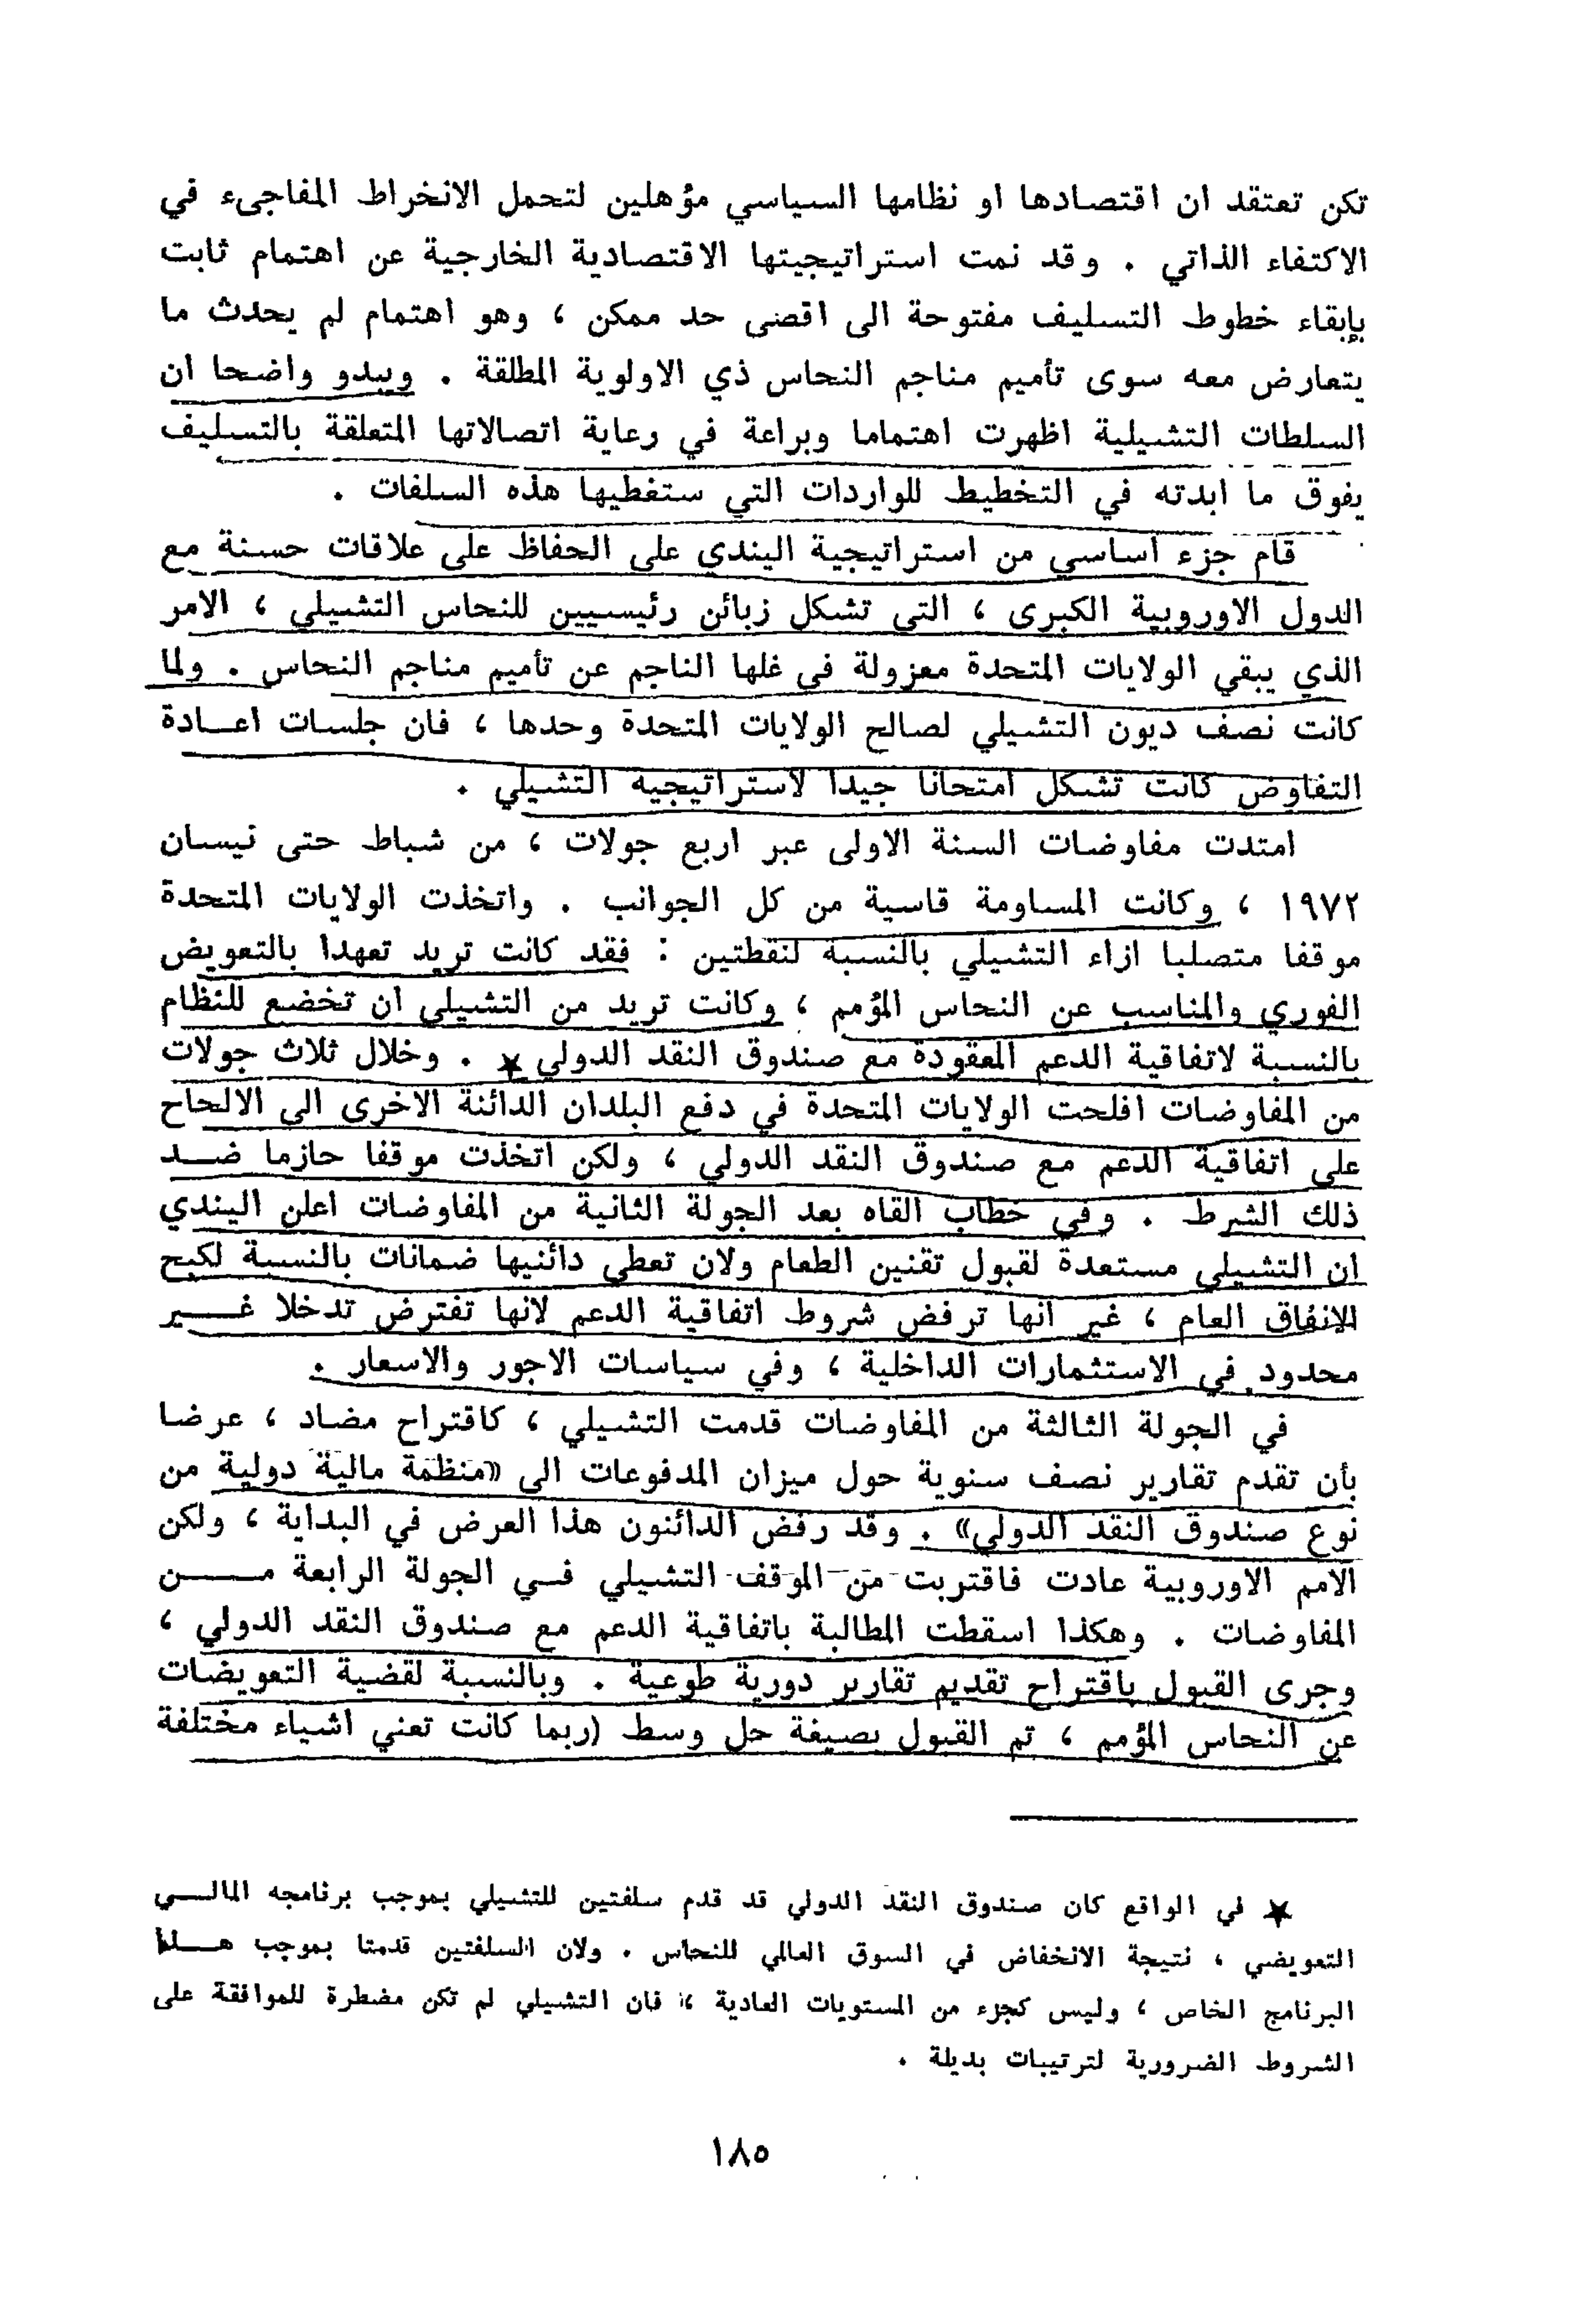 تكن تعتقد ان اقتصادها او نظامها السياسي مؤهلين لتحمل الانخراط المفاجىء في
الاكتفاء الذاتي . وقد نمت استراتيجيتها الاقتصادية الخارجية عن اهتمام ثابت
بإبقاء خطوط التسليف مفتوحة الى اقصى حد ممكن ، وهو اهتمام لم يحدث ما
يتعارض معه سوى تأميم مناجم النحاس ذي الاولوية المطلقة . ويبدو واضحا ان
السلطات التشيلية اظهرت اهتماما وبراعة في رعاية اتصالاتها المتعلقة بالتسليف
يفوق ما ابدته في التخطيط للواردات التي ستغطيها هذه السلفات .
قام جزء اساسي من استراتيجية اليندي على الحفاظ على علاقات حسنة مع
الدول الاوروبية الكبرى ، التي تشكل زبائن رئيسيين للنحاس التشيلي ، الامر
الذي يبقي الولايات المتحدة معزولة في غلها الناجم عن تأميم مناجم النحاس . ولما
كانت نصف ديون التشيلي لصالح الولايات المتحدة وحدها ، فان جلسات اعادة
التفاوض كانت تشكل امتحانا جيدا لاستراتيجيه التشيلي .
امتدت مفاوضات السنة الاولى عبر اربع جولات ، من شباط حتى نيسان
١٩٧٢ ، وكانت المساومة قاسية من كل الجوانب . واتخذت الولايات المتحدة
موقفا متصلبا ازاء التشيلي بالنسبة لنقطتين : فقد كانت تريد تعهدا بالتعويض
الفوري والمناسب عن النحاس المؤمم ، وكانت تريد من التشيلي ان تخضع للنظام
بالنسبة لاتفاقية الدعم المعقودة مع صندوق النقد الدولي ★ . وخلال ثلاث جولات
من المفاوضات افلحت الولايات المتحدة في دفع البلدان الدائنة الاخرى الى الالحاح
على اتفاقية الدعم مع صندوق النقد الدولي ، ولكن اتخذت موقفا حازما ضد
ذلك الشرط . وفي خطاب القاه بعد الجولة الثانية من المفاوضات اعلن اليندي
ان التشيلي مستعدة لقبول تقنين الطعام ولان تعطي دائنيها ضمانات بالنسبة لكبح
الانفاق العام ، غير انها ترفض شروط اتفاقية الدعم لانها تفترض تدخلا غير
محدود في الاستثمارات الداخلية ، وفي سياسات الاجور والاسعار .
في الجولة الثالثة من المفاوضات قدمت التشيلي ، كاقتراح مضاد ، عرضا
بأن تقدم تقارير نصف سنوية حول ميزان المدفوعات الى «منظمة مالية دولية من
نوع صندوق النقد الدولي» . وقد رفض الدائنون هذا العرض في البداية ، ولكن
الامم الاوروبية عادت فاقتربت من الموقف التشيلي في الجولة الرابعة من
المفاوضات . وهكذا اسقطت المطالبة باتفاقية الدعم مع صندوق النقد الدولي ،
وجرى القبول باقتراح تقديم تقارير دورية طوعية . وبالنسبة لقضية التعويضات
عن النحاس المؤمم ، تم القبول بصيغة حل وسط (ربما كانت تعني اشياء مختلفة
★ في الواقع كان صندوق النقد الدولي قد قدم سلفتين للتشيلي بموجب برنامجه المالي
التعويضي ، نتيجة الانخفاض في السوق العالمي للنحاس . ولان السلفتين قدمتا بموجب هذا
البرنامج الخاص ، وليس كجزء من المستويات العادية ، فان التشيلي لم تكن مضطرة للموافقة على
الشروط الضرورية لترتيبات بديلة .
١٨٥